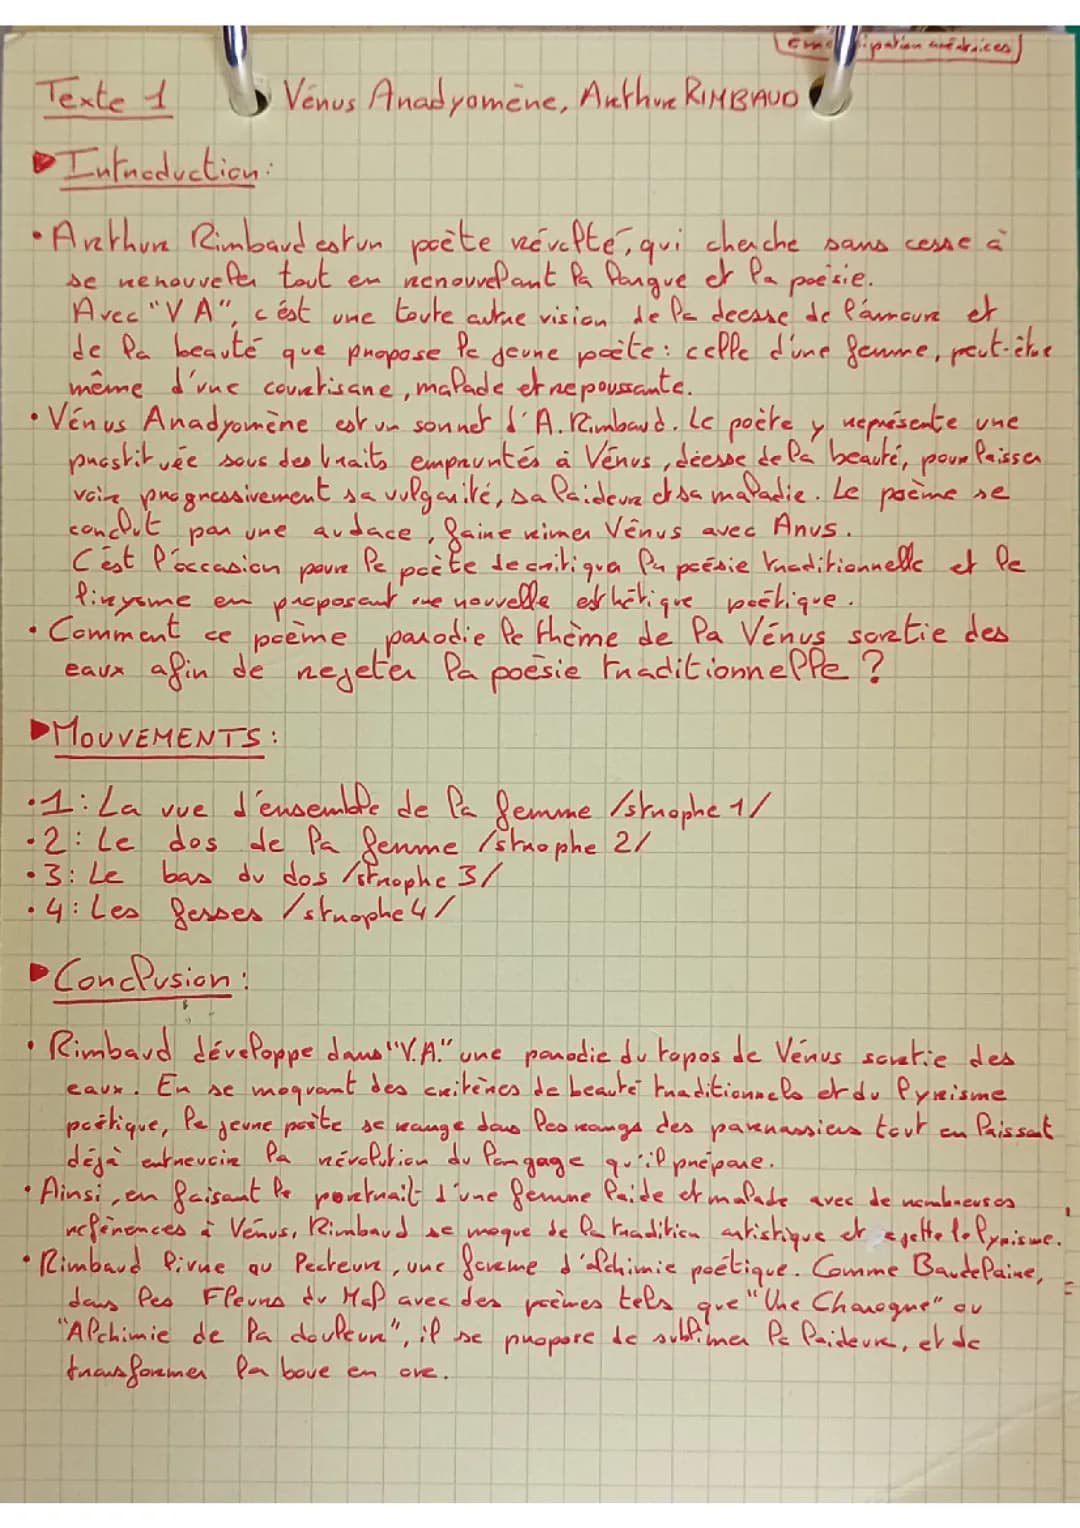 (émancipation créatrices)
Texte 1 Vénus Anadyomène, Arthur RIMBAUD
Introduction:
• Arthur Rimbaud est un poète révolté, qui cherche sans cesse à
se renouveler tout en renouvelant la langue et la poésie.
Avec "V A", c'est une toute autre vision de la deesse de l'amour et
de la beauté que propose le jeune poète : celle d'une femme, peut-être
même d'une courtisane, malade et repoussante.
• Vénus Anadyomène est un sonnet d'A. Rimbaud. Le poète y représente une
prostituée sous des traits empruntés à Vénus, déesse de la beauté, pour laisser
voir progressivement sa vulgarité, sa laideur et sa maladie. Le poème se
conclut par une audace, faire rimer Vénus avec Anus.
C'est l'occasion pour le poète de critiqua la poésie traditionnelle et le
lirysme en proposant une nouvelle esthétique poétique.
• Comment ce poème parodie le thème de la Vénus sortie des
eaux afin de rejeter la poésie traditionnelle ?
MOUVEMENTS :
• 1 : La vue d'ensemble de la femme /strophe 1/
• 2 : Le dos de la femme /strophe 2/
• 3 : Le bas du dos /strophe 3/
• 4 : Les fesses /strophe 4/
Conclusion :
• Rimbaud développe dans "V.A." une parodie du topos de Vénus sortie des
eaux. En se moquant des critères de beauté traditionnels et du lyrisme
poétique, le jeune poète se range dans les rangs des parnassiens tout en laissant
déjà entrevoir la révolution du langage qu'il prépare.
• Ainsi, en faisant le portrait d'une femme laide et malade avec de nombreuses
références à Vénus, Rimbaud se moque de la tradition artistique et rejette le lyrisme.
• Rimbaud livre au lecteur, une forme d'alchimie poétique. Comme Baudelaire,
dans les Fleurs du Mal avec des poèmes tels que "Une Charogne" ou
"Alchimie de la douleur", il se propose de sublimer la laideur, et de
transformer la boue en or.